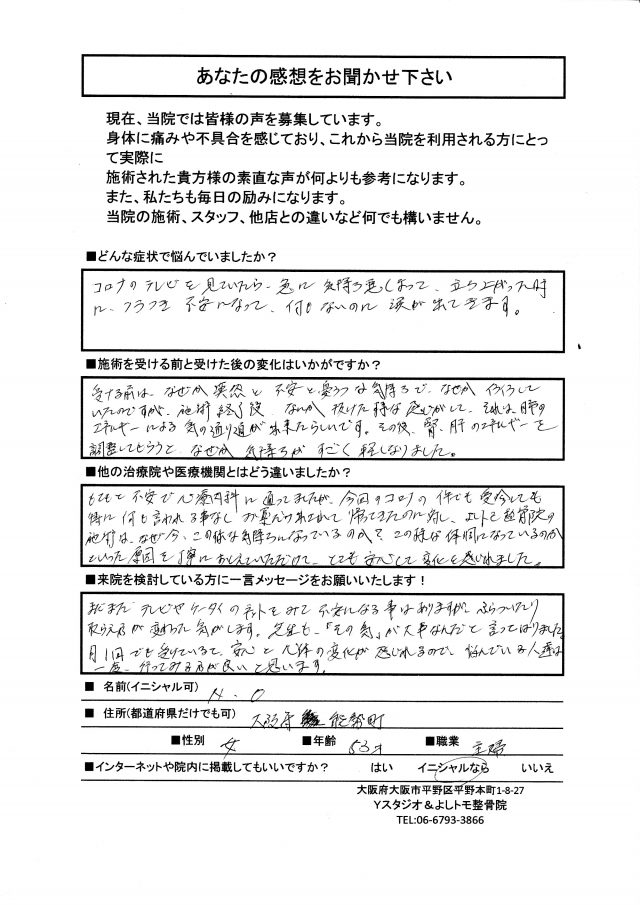 あなたの感想をお聞かせ下さい
現在、当院では皆様の声を募集しています。
身体に痛みや不具合を感じており、これから当院を利用される方にとっ
て実際に
施術された貴方様の素直な声が何よりも参考になります。
また、私たちも毎日の励みになります。
当院の施術、スタッフ、他店との違いなど何でも構いません。
■どんな症状で悩んでいましたか？
コロナのテレビを見ていたら、急に気持ち悪くなって、立ち上がった時
に、フラつき不安になって、何もないのに涙が出てきます。
■施術を受ける前と受けた後の変化はいかがですか？
受ける前は、なぜか 不安と憂うつな気持ちで、なぜかイライラして
いたのですが、施術終了後、なんか抜けた様な感じがして、それは肺の
エネルギーによる気の通り道が出来たらしいです。その後、腎、肝のエネルギーを
調整してもらうと、なぜか気持ちがすごく軽くなりました。
■他の治療院や医療機関とはどう違いましたか？
もともと不安で心療内科に通ってましたが、今回のコロナの件でも受診しても
特に何も言われる事なし お薬だけ 帰ってきたのに対し、よしトモ整骨院の
施術は、なぜ今、この様な気持ちになっているのか？この様な体調になっているのか
といった原因を丁寧におしえていただけて、とても安心して変化を感じれました。
■来院を検討している方に一言メッセージをお願いいたします！
まだまだテレビやケータイのネットをみて不安になる事はありますが、ふらついたり
とらえ方が変わった気がします。先生も、「その気」が大事なんだと言ってはりました。
月1回でも受けていると、安心と心体の変化が感じれるので、悩んでいる人達は
一度、行ってみる方が良いと思います。
■ 名前(イニシャル可) H.O
■ 住所(都道府県だけでも可) 大阪府 能勢町
■性別 女 ■年齢 53才 ■職業 主婦
■インターネットや院内に掲載してもいいですか？ はい イニシャルなら いいえ
大阪府大阪市平野区平野本町1-8-27
Yスタジオ＆よしトモ整骨院
TEL:06-6793-3866